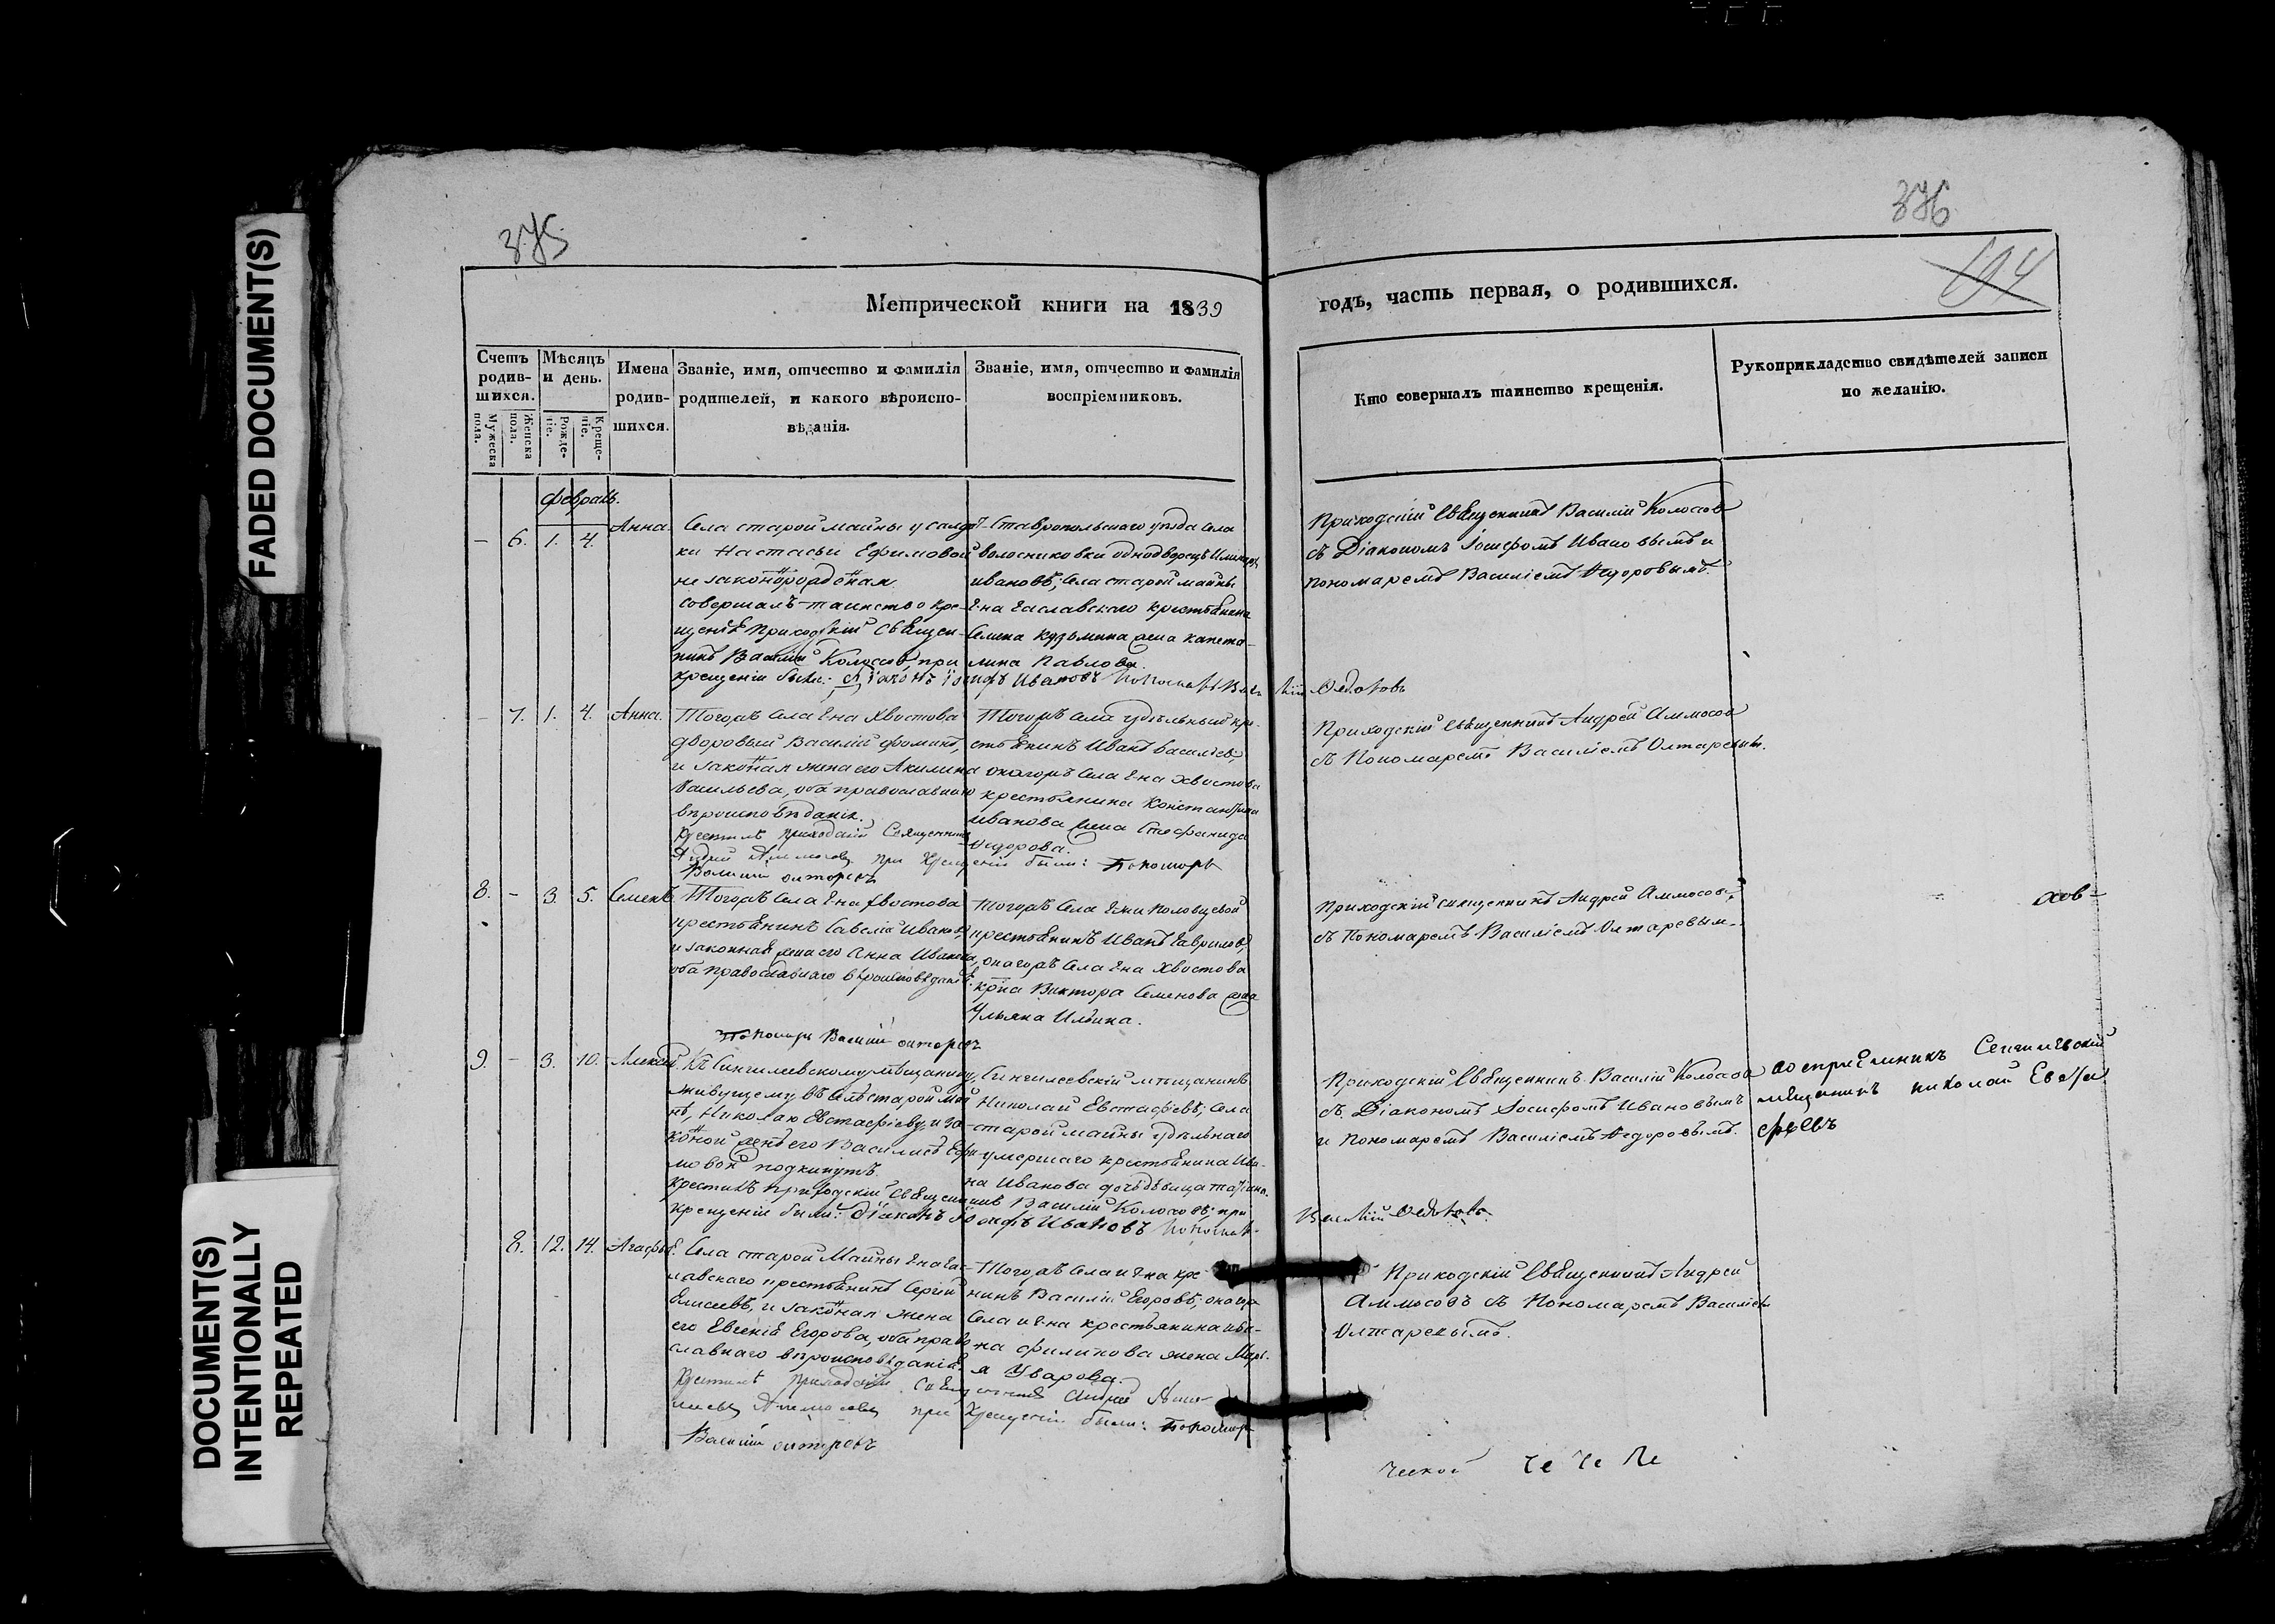 FADED DOCUMENT(S)
DOCUMENT(S)
INTENTIONALLY
REPEATED
375
376
104
Метрической книги на 1839
годъ, часть первая, о родившихся.
Счетъ родив-шихся.
Мужеска пола.
Женска пола.
Мѣсяцъ и день.
Рожде-ніе.
Креще-ніе.
Имена родив-шихся.
Званіе, имя, отчество и фамилія
родителей, и какого вѣроиспо-
вѣданія.
Званіе, имя, отчество и фамилія
воспріемниковъ.
Кто совершалъ таинство крещенія.
Рукоприкладство свидѣтелей записи
по желанію.
февраль.
– 6. 1. 4. Анна.
Села старой майны у салдат-
ки Настасьи Ефимовой
незаконорожденая
совершалъ таинство кре-
щенія Приходскій Свѣщен-
никъ Василій Колосовъ при
крещеніи были: Діаконъ Іосифъ Ивановъ Пономарь Василій Федотовъ
Ставропольскаго уѣзда села
однодворецъ
ивановъ; Села старой майны
г-на крестьянина
Семена Кузьмина жена капето-
лина Павлова.
Приходскій Свѣщенникъ Василій Колосов
съ Діакономъ Іосифомъ Ивановымъ и
пономаремъ Василіемъ Федоровымъ.
– 7. 1. 4. Анна.
Тогожъ села г-на Хвостова
дворовый Василій Фоминъ,
и законая жена его Акилина
Васильева, оба православнаго
вѣроисповѣданія.
Крестилъ приходскій Священникъ
Андрей Аммосовъ при крещеніи были: Пономарь
Василій Олтаревъ
Тогожъ села удѣльный кре-
стьянинъ Иванъ Василіевъ;
онагожъ села г-на Хвостова
крестьянина Константина
иванова жена Стефанида
Федорова.
Приходскій свѣщенникъ Андрей Аммосов
съ Пономаремъ Василіемъ Олтаревым.
8. – 3. 5. Семенъ.
Тогожъ села г-на Хвостова
крестьянинъ Савелій Иванов,
и законная жена его Анна Иванова,
оба православнаго вѣроисповѣданія.
Пономарь Василій Олтаревъ
Тогожъ села г-жи Половцевой
крестьянинъ Иванъ Гаврилов,
онагожъ села г-на Хвостова
кр̃на Виктора Семенова жена
Ульяна Ильина.
Приходскій священникъ Андрей Аммосов,
съ Пономаремъ Василіемъ Олтаревым.
9. – 3. 10. Алексѣй.
Къ Сингилевскому мѣщанину,
живущему въ селѣ старой май
нѣ, Николаю Евстафіеву, и за-
коной женѣ его Василисѣ Ефи
мовой подкинутъ.
крестилъ приходскій Свѣщенникъ Василій Колосовъ; при
крещеніи были: Діаконъ Іосифъ Ивановъ Пономарь Василій Федотовъ
Сингилеевскій мѣщанинъ
Николай Евстафіевъ; села
старой майны удѣльнаго
умершаго крестьянина Ива-
на Иванова дочь дѣвица
Приходскій Свѣщенникъ Василій Колосов
съ Діакономъ Іосифомъ Ивановымъ
и пономаремъ Василіемъ Федоровымъ.
воспріемникъ Сенгилѣвскій
мѣщанинъ николай Евста
фьевъ
8. 12. 14. Агафья.
Села старой Майны г-на
крестьянинъ Сергій
Елисеевъ, и законая жена
его Евгенія Егорова, оба право
славнаго вѣроисповѣданія.
Крестилъ приходскій Священникъ Андрей
Аммосовъ при крещеніи были: Пономарь
Василій Олтаревъ
Тогожъ села и г-на кре-
нинъ Василій Егоровъ; онагож
села и г-на крестьянина ива-
на филипова жена Марь-
я Уварова.
Приходскій Свѣщенникъ Андрей
Аммосовъ съ Пономаремъ Василіем
Олтаревымъ.